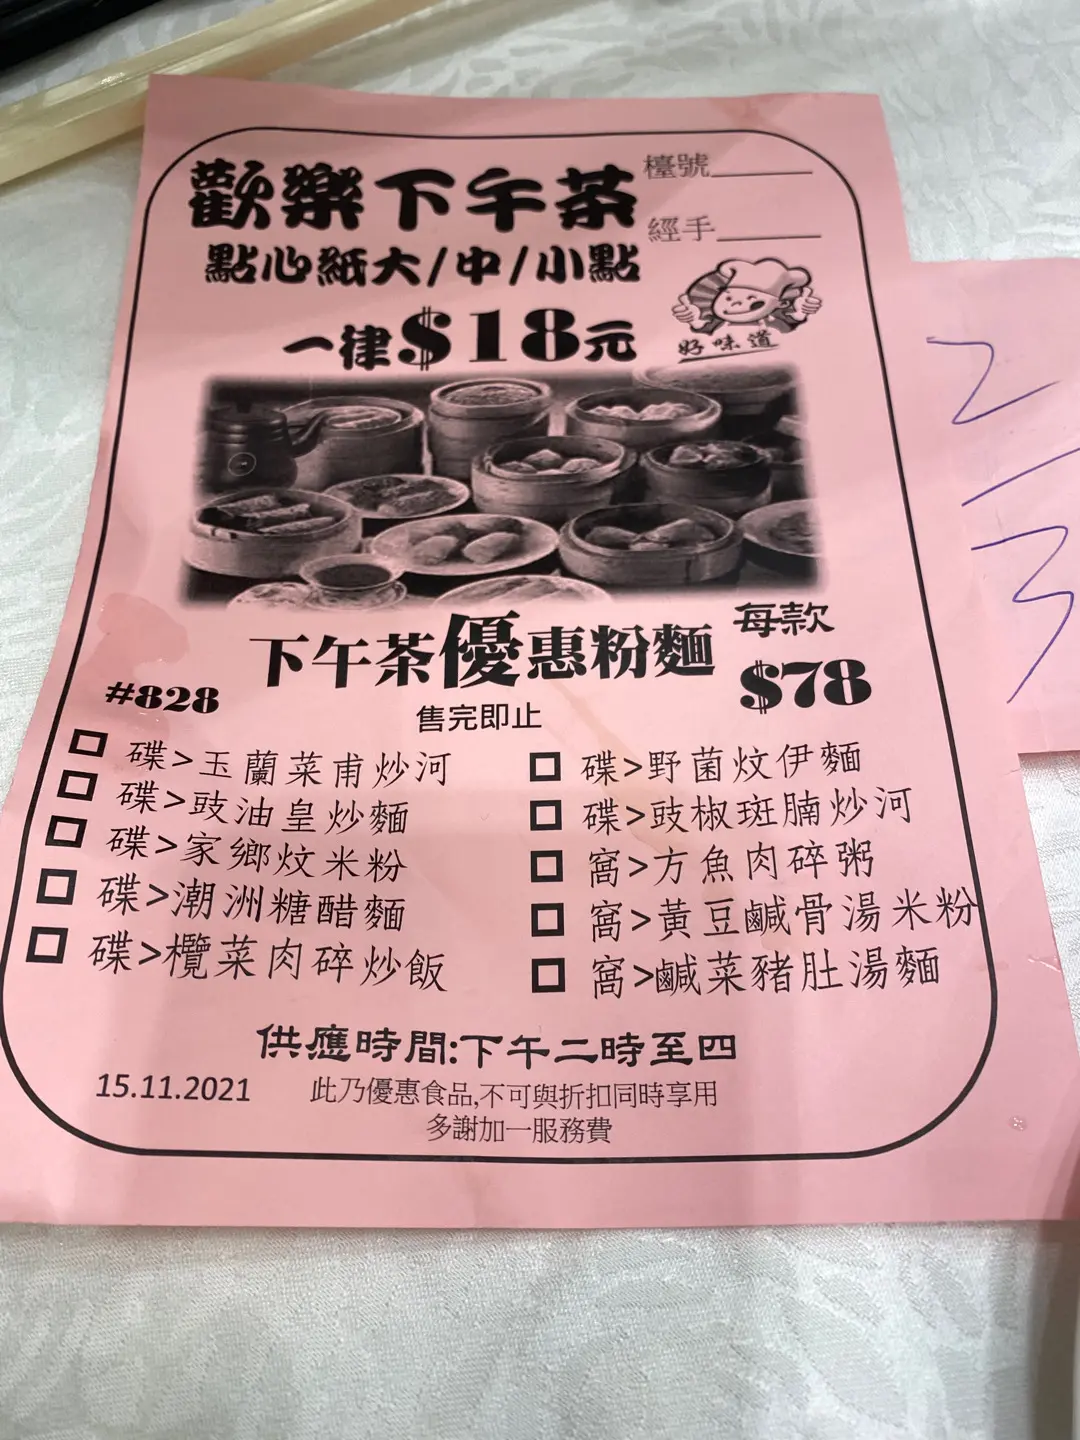 歡樂下午茶
檯號______
經手______
點心紙大/中/小點
一律$18元
好味道
下午茶優惠粉麵
每款
$78
#828
售完即止
碟>玉蘭菜甫炒河
碟>豉油皇炒麵
碟>家鄉炆米粉
碟>潮洲糖醋麵
碟>欖菜肉碎炒飯
碟>野菌炆伊麵
碟>豉椒斑腩炒河
窩>方魚肉碎粥
窩>黃豆鹹骨湯米粉
窩>鹹菜豬肚湯麵
供應時間:下午二時至四
15.11.2021
此乃優惠食品,不可與折扣同時享用
多謝加一服務費
2
3